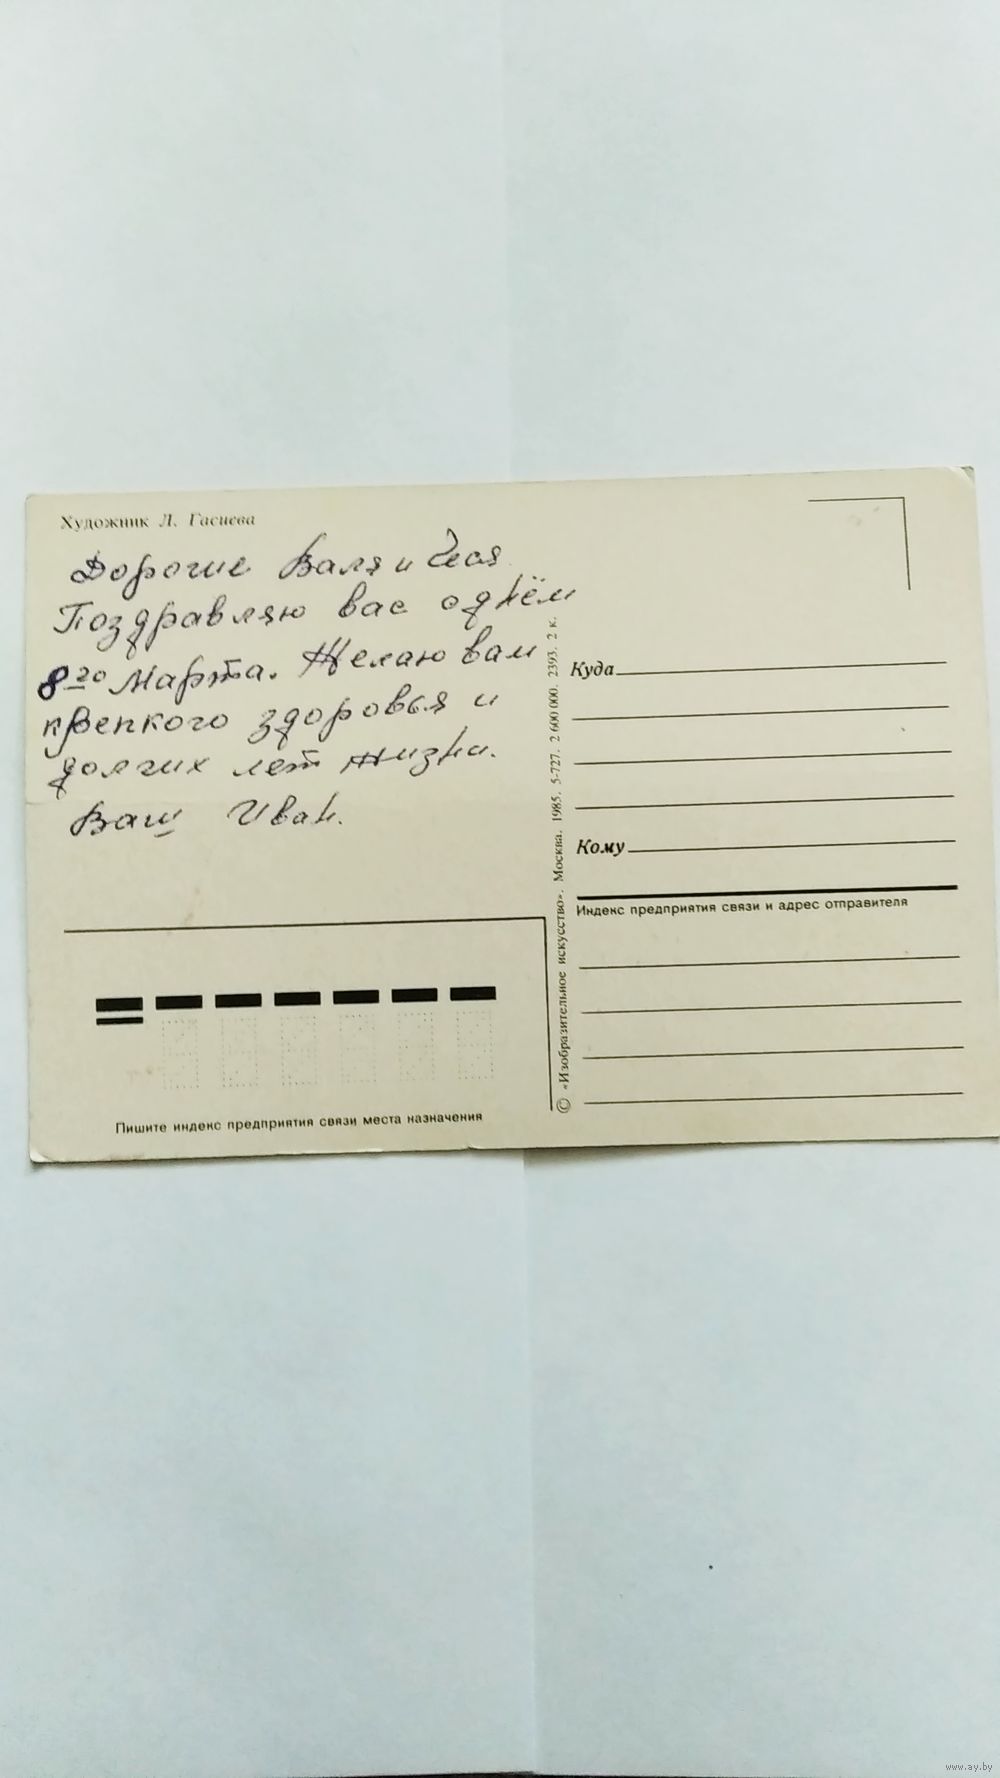 Художник Л. Гасиева
Дорогие Валя и Чеся
Поздравляю вас с днём
8го Марта. Желаю вам
крепкого здоровья и
долгих лет жизни.
Ваш Иван.
Пишите индекс предприятия связи места назначения
© «Изобразительное искусство». Москва. 1985. 5-727. 2 600 000. 2393. 2 к.
Куда
Кому
Индекс предприятия связи и адрес отправителя
www.ay.by